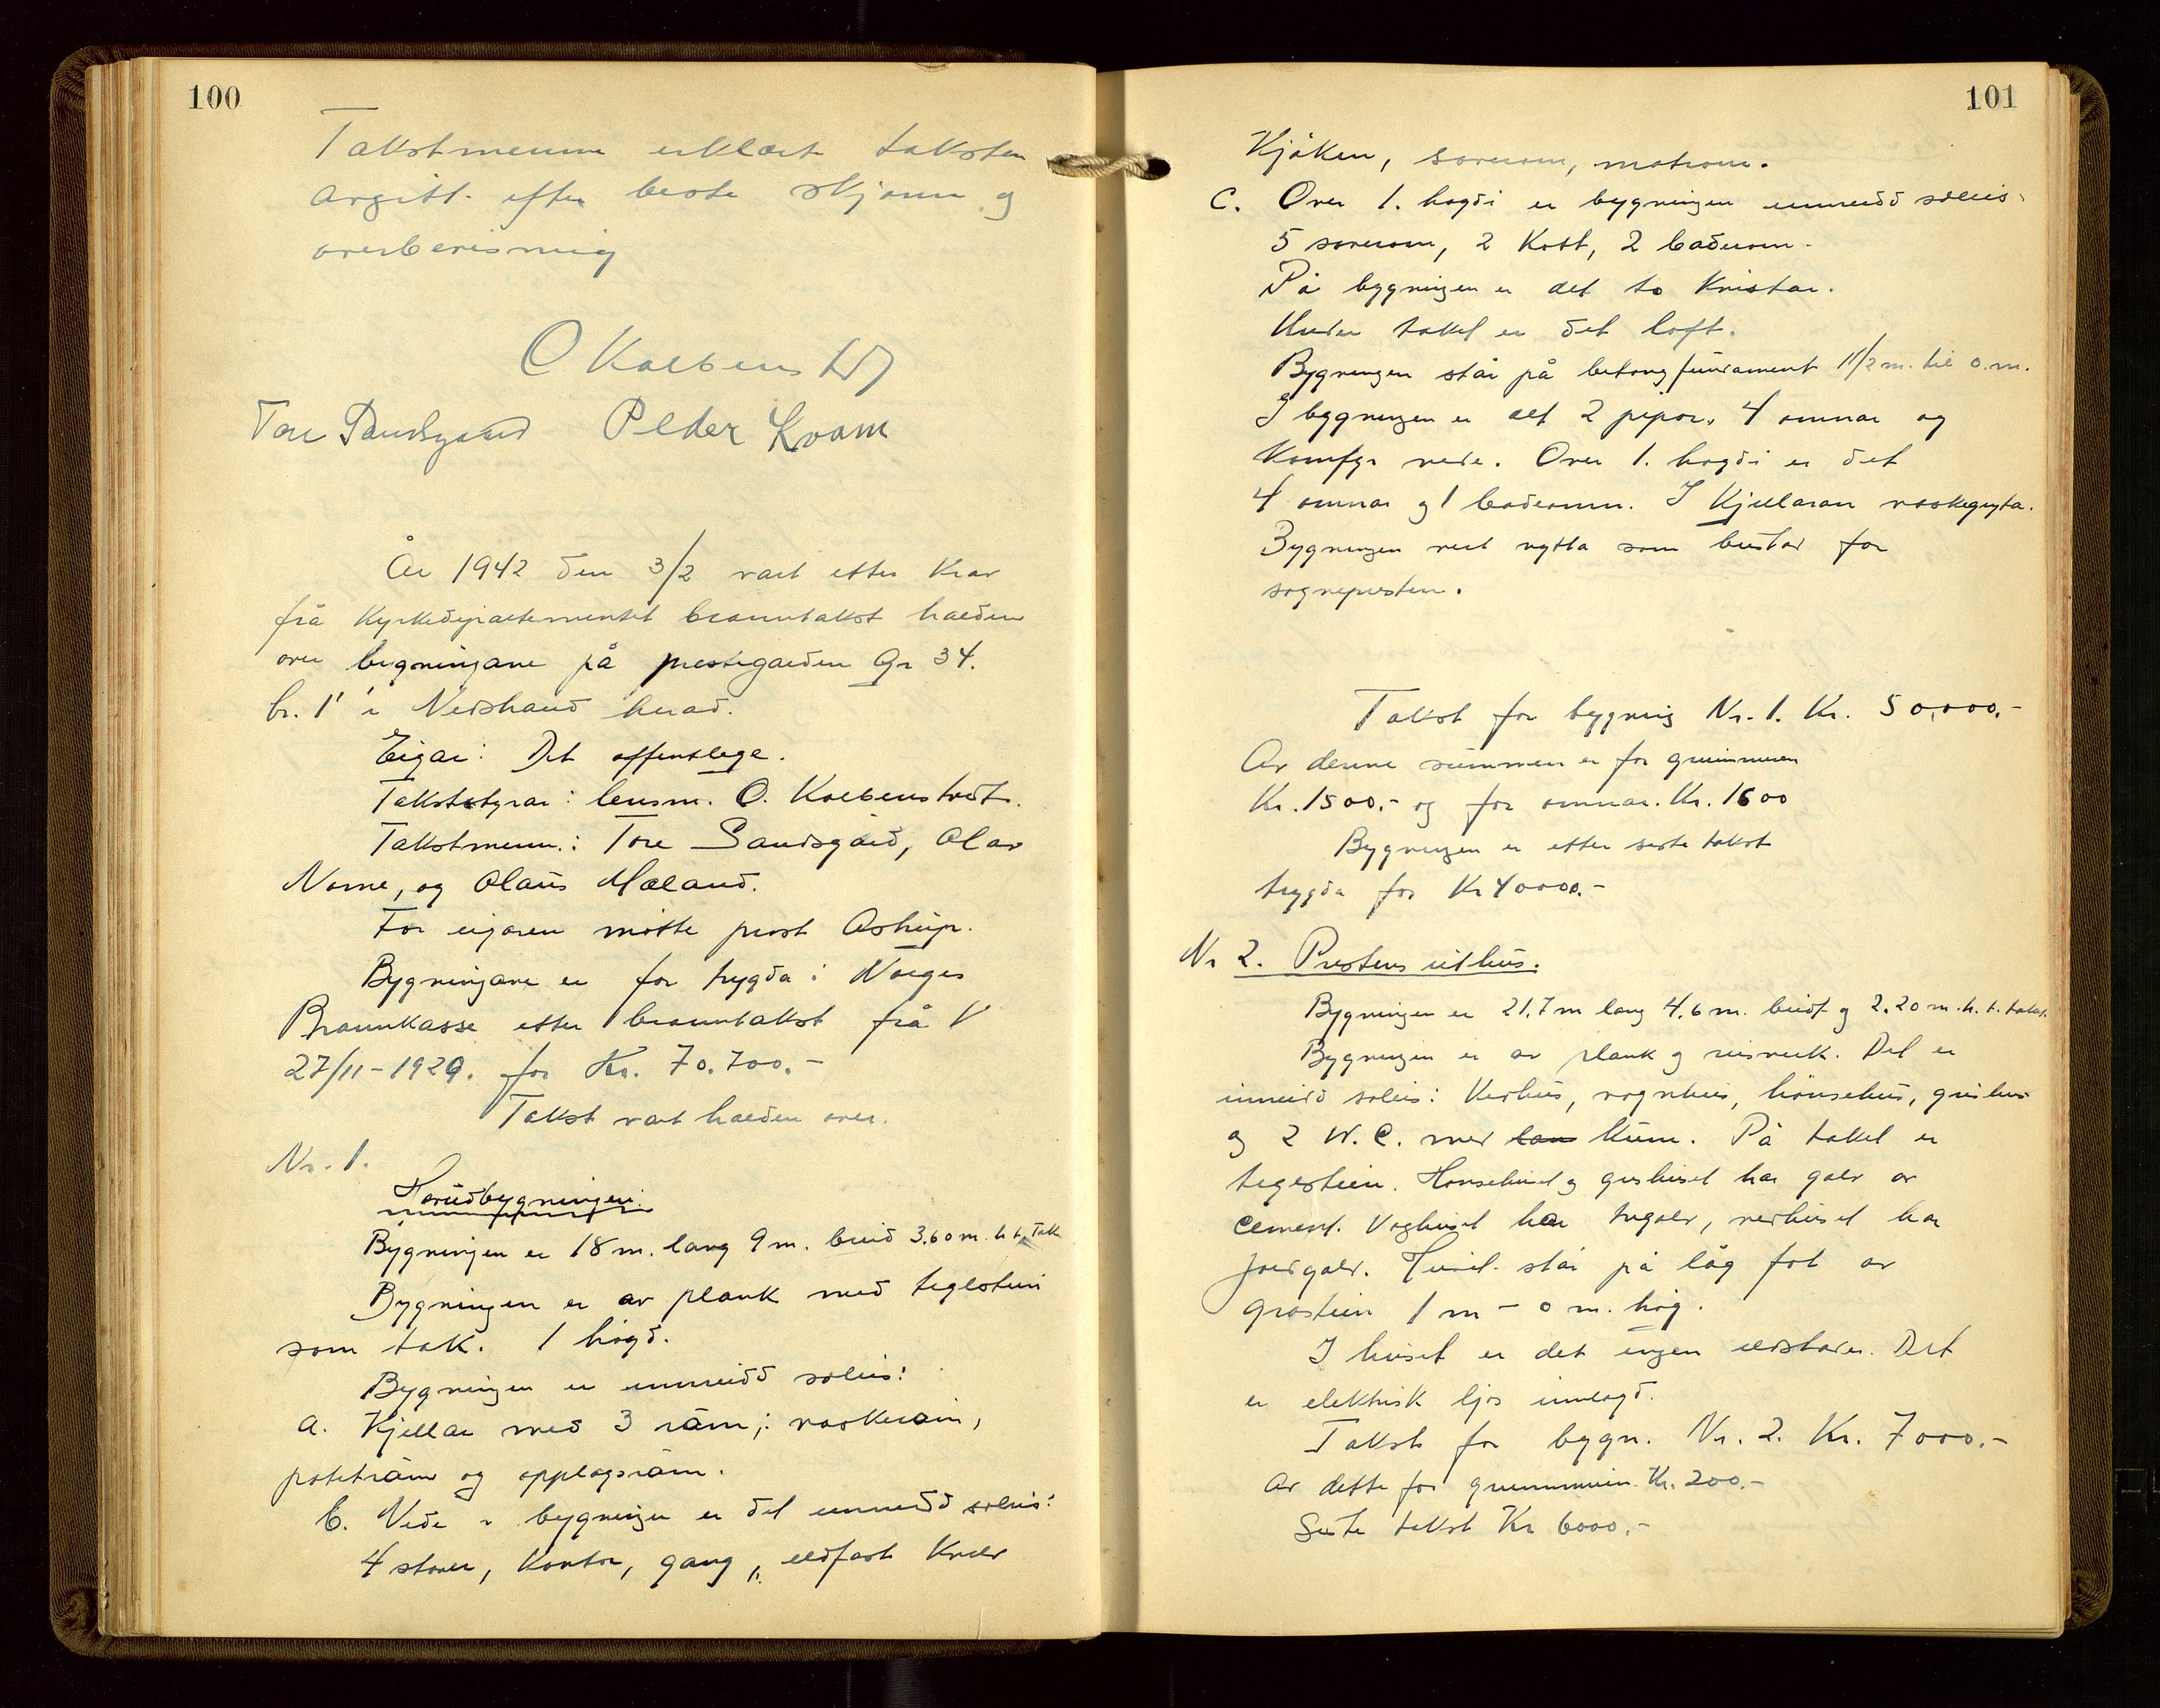 100
Takstmenne erklært taksten
avgitt efter beste skjønn og
overbevisning
O Kolbenstvedt
Tore Sandsgard Peder Kvam
År 1942 den 3/2 vart etter krav
frå Kyrkedepartementet branntakst halden
over bygningane på prestegarden Gr 34.
br. 1 i Nedstrand herad.
Eigar: Det offentlege.
Takststyrar: lensm. O. Kolbenstvedt.
Takstmenn: Tore Sandsgård, Olav
Norne, og Olaus Mæland.
For eigaren møtte prost Astrup.
Bygningane er for trygda i Norges
Brannkasse etter branntakst frå
27/11-1929. for Kr. 70.700.-
Takst vart halden over.
Nr. 1.
Hovudbygningen:
Bygningen er 18 m. lang 9 m. breid 3.60 m. h. t. Tak
Bygningen er av plank med teglstein
som tak. 1 høgd.
Bygningen er innreidd soleis:
a. Kjellar med 3 råm; vaskeråm,
potetråm og opplagsråm.
b. Nede i bygningen er det innreidd soleis:
4 stover, kontor, gang, eldfast kvelv
101
Kjøken, soverom, matrom.
C. Over 1. høgdi er bygningen innreidd soleis:
5 soverom, 2 Kott, 2 baderom.
På bygningen er det to Kvistar.
Under taket er det loft.
Bygningen står på betongfundament 1 1/2 m. til 0. m.
I bygningen er det 2 pipor, 4 omnar og
Komfyr nede. Over 1. høgdi er det
4 omnar og 1 badeomn. I Kjellaren vaskegryta.
Bygningen vert nytta som bustad for
sognepresten.
Takst for bygning Nr. 1. Kr. 50.000.-
Av denne summen er for grunnmuren
Kr. 1500.- og for omnar. Kr. 1600
Bygningen er etter siste takst
trygda for Kr 40000.-
Nr 2. Prestens uthus.
Bygningen er 21.7 m lang 4.6 m. breidt og 2.20 m. h. t. taket.
Bygningen er av plank og reisverk. Det er
innreidd soleis: Vedhus, vognhus, hönsehus, grishus
og 2 W.C. med lan kum. På taket er
teglstein. Hönsehuset og grishuset har golv av
cement. Voghuset har tregolv, vedhuset har
jordgolv. Huset står på låg fot av
gråstein 1 m - 0 m. høg.
I huset er det ingen eldstader. Det
er elektrisk ljos innlagd.
Takst for bygn. Nr. 2. Kr. 7000.-
Av dette for grunnmuren Kr. 200.-
Siste takst Kr 6000.-